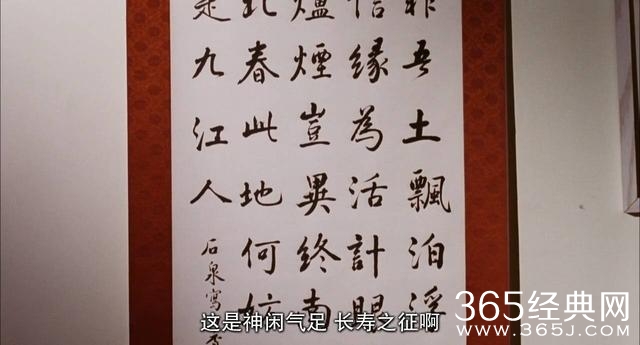 吾土飄泊
緣為活計
爐煙豈異終南
北春此地何妨
是九江人
石泉寫
这是神闲气足 长寿之征啊
365经典网
WWW.365J.COM